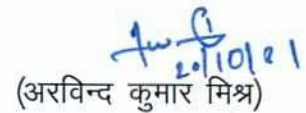 20/10/21
(अरविन्द कुमार मिश्र)